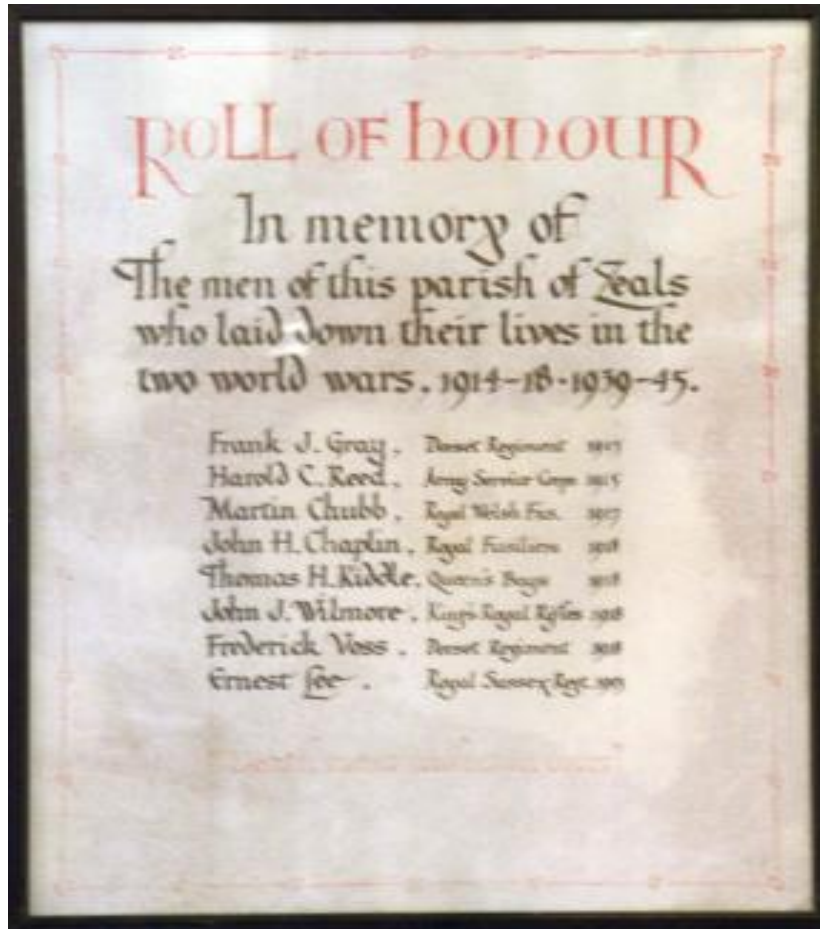 Roll of honour
In memory of
The men of this parish of Zeals
who laid down their lives in the
two world wars. 1914-18·1939-45.
Frank J. Gray. Dorset Regiment
Harold C. Reed. Army Service Corps 1915
Martin Chubb. Royal Welsh Fus. 1917
John H. Chaplin. Royal Fusiliers 1918
Thomas H. Kiddle. Queen's Bays 1918
John J. Wilmore. King's Royal Rifles 1918
Frederick Voss. Dorset Regiment 1918
Ernest Lee. Royal Sussex Regt.